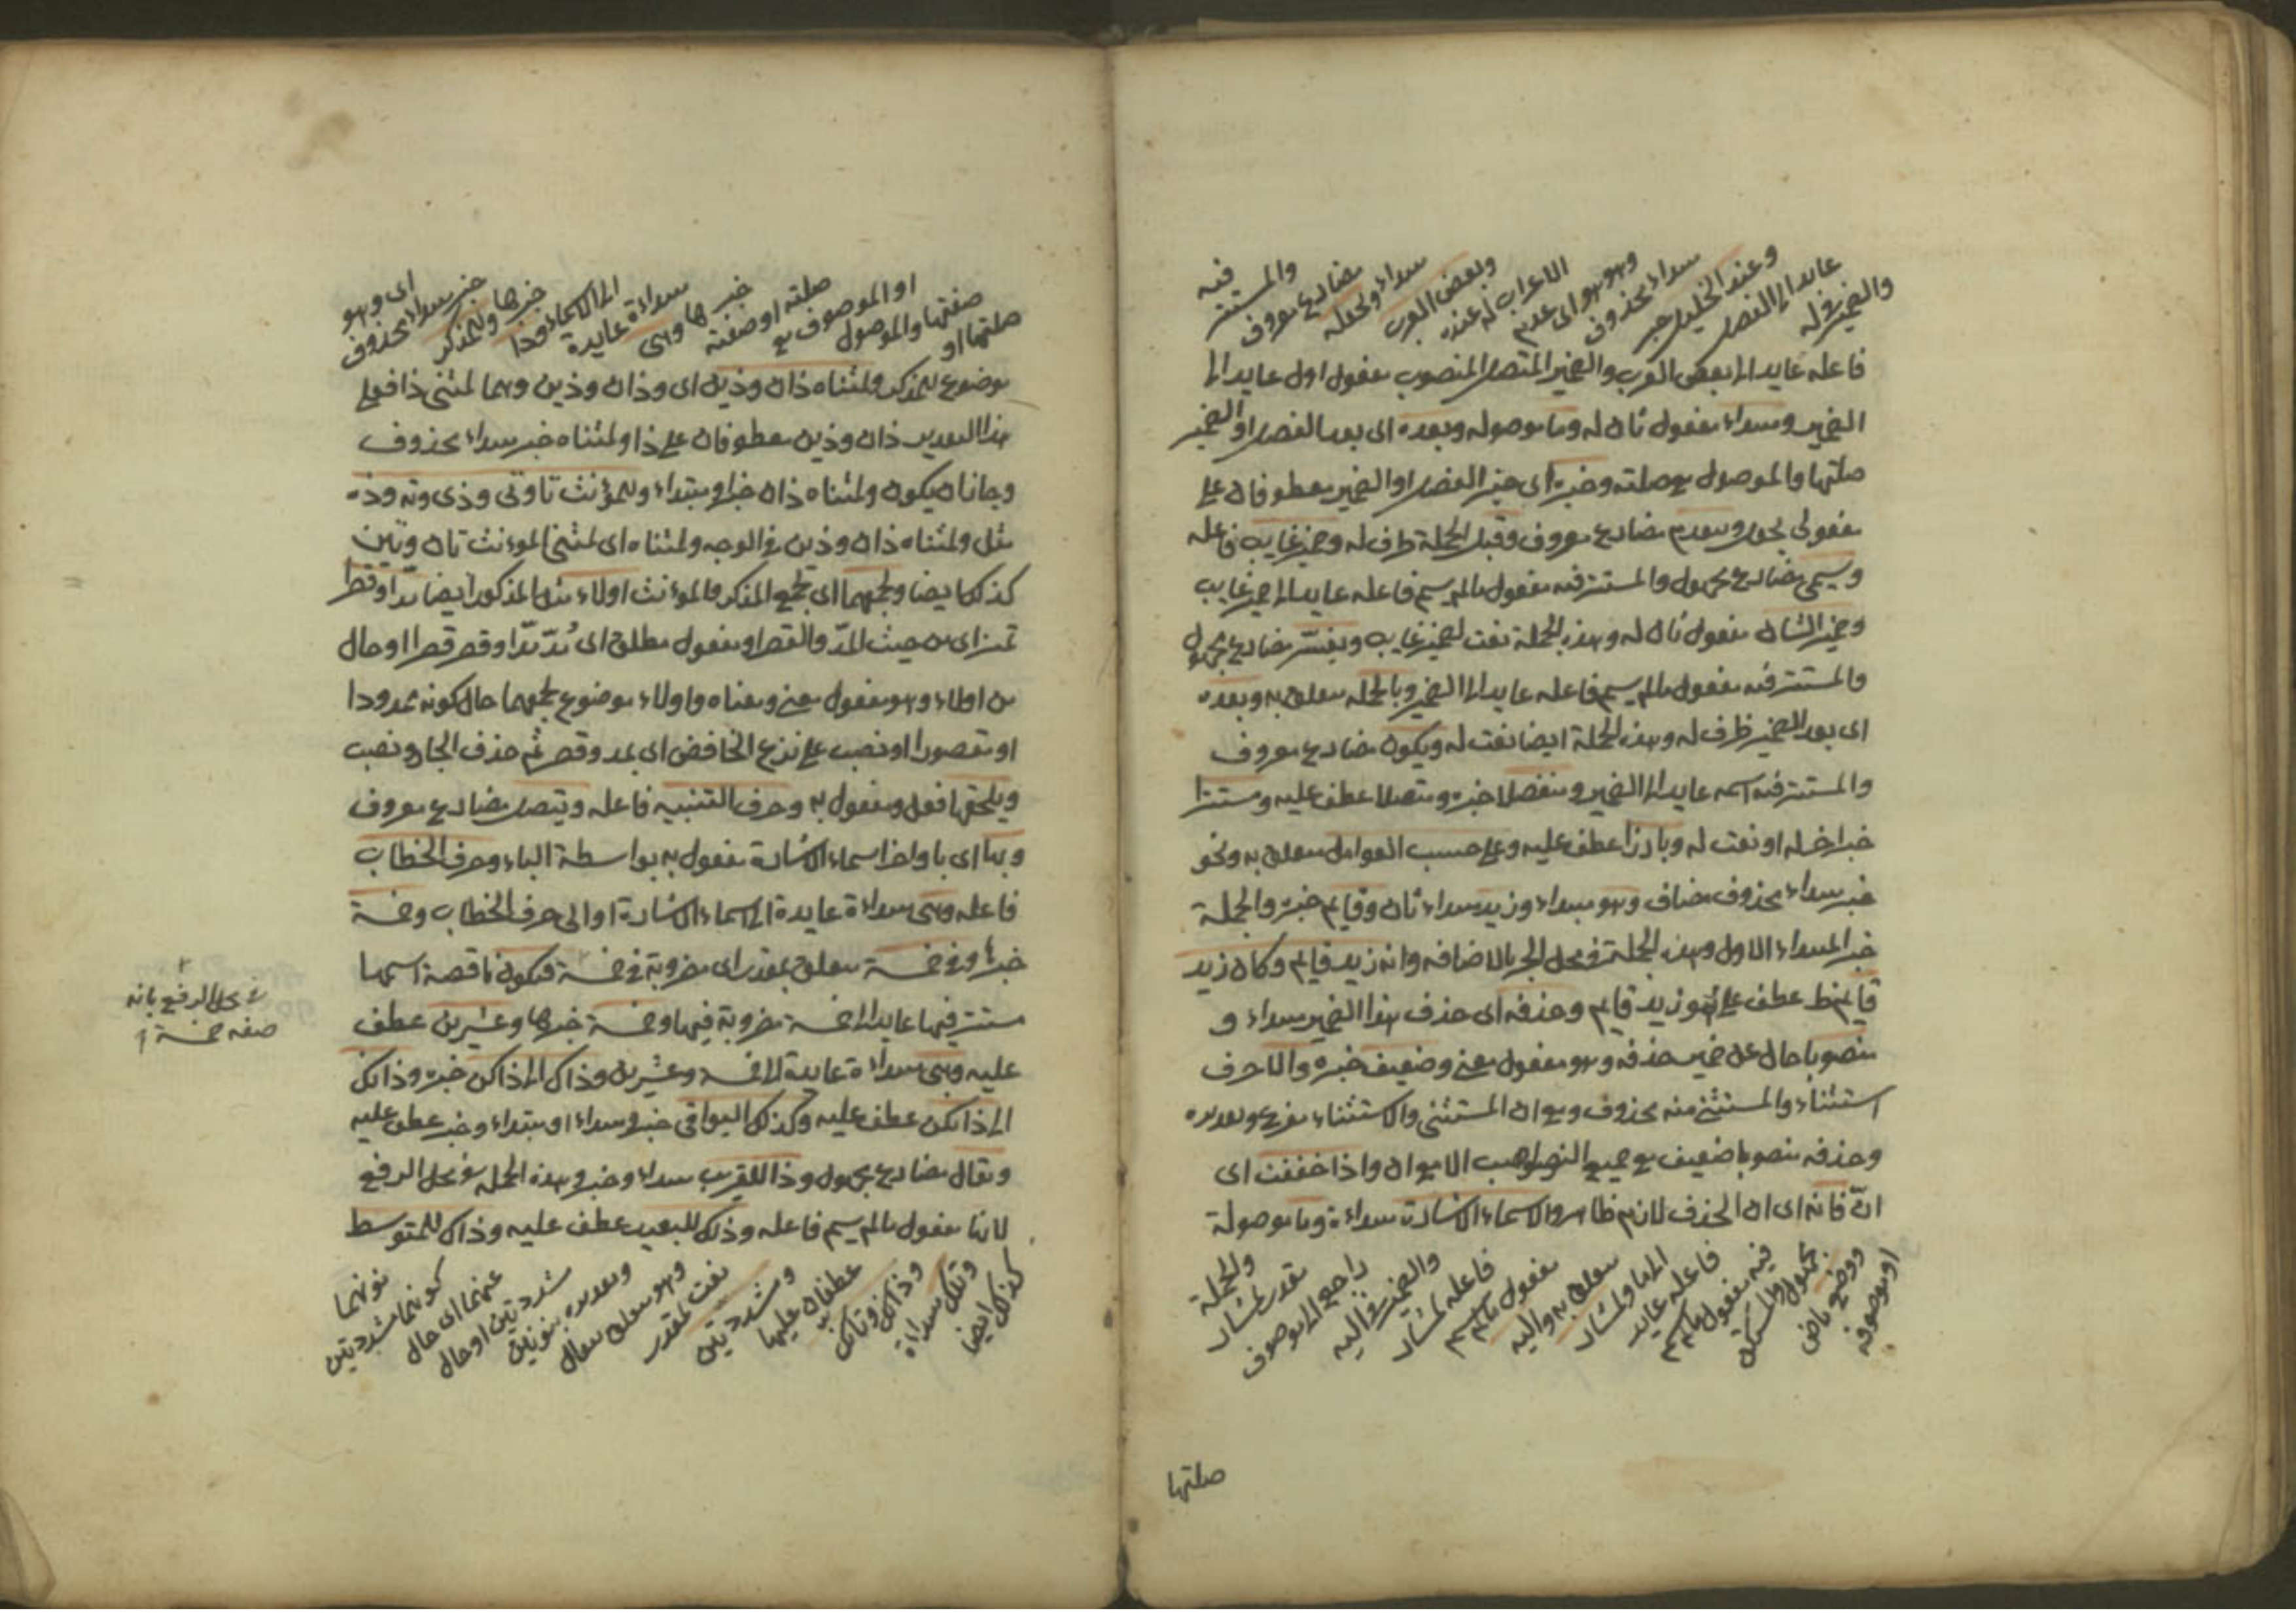 والضمير في له
عايد الى الفصل
وعند الخليل خبر
مبتداء محذوف
وهو هو اى عدم
الاعراب له عنده
وبعض العرب
مبتداء ويجعله
مضارع معروف
والمستتر
فيه
فاعله عايد الى بعض العرب والضمير المتصل المنصوب مفعول اول عايد الى
الضمير ومبتداء مفعول ثان له وما موصوله وبعده اى بعد الفصل او الضمير
صلتها والموصول مع صلته وخبره اى خبر الفصل او الضمير معطوفان على
مفعولى يجعل ويتقدم مضارع معروف وقبل الجملة ظرف له وضمير غايب فاعله
ويسمى مضارع مجهول والمستتر فيه مفعول مالم يسم فاعله عايد الى ضمير غايب
وضمير الشان مفعول ثان له وهذه الجملة نعت لضمير غايب ويفسّر مضارع مجهول
والمستتر فيه مفعول مالم يسم فاعله عايد الى الضمير وبالجملة متعلق به وبعده
اى بعد الضمير ظرف له وهذه الجملة ايضا نعت له ويكون مضارع معروف
والمستتر فيه اسمه عايد الى الضمير ومنفصلا خبره ومتصلا عطف عليه ومستترا
خبر اخر له او نعت له وبارزا عطف عليه وعلى حسب العوامل متعلق به ونحو
خبر مبتداء محذوف مضاف وهو مبتداء وزيد مبتداء ثان وقايم خبره والجملة
خبر المبتداء الاول وهذه الجملة في محل الجر بالاضافه وانه زيد قايم وكان زيد
قايم عطف على هو زيد قايم وحذفه اى حذف هذا الضمير مبتداء و
منصوبا حال عن ضمير حذفه وهو مفعول معنى وضعيف خبره والا حرف
استثناء والمستثنى منه محذوف وهو ان المستثنى والاستثناء مفرغ وتقديره
وحذفه منصوبا ضعيف مع جميع النواصب الا مع ان واذا خففت اى
انّ فانه اى ان الحذف لازم ظاهر والاسماء الاشارة مبتداءة وما موصولة
او موصوفه
ووضع ماض
مجهول والمستكن
فيه مفعول مالم يسم
فاعله عايد
الى ما ولمشار
متعلق به واليه
مفعول مالم يسم
فاعله لمشار
والضمير في اليه
راجع الى موصوف
مقدر لمشار
والجملة
صلتها
صلتها او
صفتها والموصول
او الموصوف مع
صلته او صفته
خبرها وهى
مبتداءة عايدة
الى الاسماء وذا
خبرها وللمذكر
خبر مبتداء محذوف
اى وهو
موضوع للمذكر ولمثناه ذان وذين اى وذان وذين وهما لمثنى ذا فعلى
هذا التقدير ذان وذين معطوفان على ذا ولمثناه خبر مبتداء محذوف
وجاز ان يكون ولمثناه ذان خبر ومبتداء وللمؤنث تا وتى وذى وته وذه
مثل ولمثناه ذان وذين في الوجه ولمثناه اى لمثنى المؤنث تان وتين
كذلك ايضا ولجمعهما اى لجمع المذكر والمؤنث اولاء مثل المذكور ايضا مدا وقصرا
تميز اى من حيث المدّ والقصر او مفعول مطلق اى مُدّ مدّا وقصر قصرا او حال
من اولاء وهو مفعول معنى ومعناه واولاء موضوع لجمعهما حال كونه ممدودا
او مقصورا او نصب على نزع الخافض اى بمد وقصر ثم حذف الجار ونصب
ويلحقها فعل ومفعول به وحرف التنبيه فاعله ويتصل مضارع معروف
وبها اى باواخر اسماء الاشارة مفعول به بواسطة الباء وحرف الخطاب
فاعله وهى مبتداءة عايدة الى اسماء الاشارة او الى حرف الخطاب وخمسة
خبرها وفي خمسة متعلق بمقدر اى مضروبة في خمسة فيكون ناقصة اسمها
مستتر فيها عايد الى خمسة مضروبة فيها وخمسة خبرها وعشرين عطف
عليه وهى مبتداءة عايدة الى خمسة وعشرين وذاك الى ذاكن خبره وذانك
الى ذانكن عطف عليه وكذلك البواقى خبر ومبتداء او مبتداء وخبر عطف عليه
ويقال مضارع مجهول وذا للقريب مبتداء وخبر وهذه الجملة في محل الرفع
لانها مفعول مالم يسم فاعله وذلك للبعيد عطف عليه وذاك للمتوسط
كذلك ايضا
وتلك مبتداءة
وذانك وتانك
عطفان عليها
ومشددتين
نعت لمقدر
وهو متعلق بيقال
وتقديره بنونين
مشددتين او حال
عنهما اى حال
كونهما مشددتين
نونهما
في محل الرفع بانه
صفه خمسة